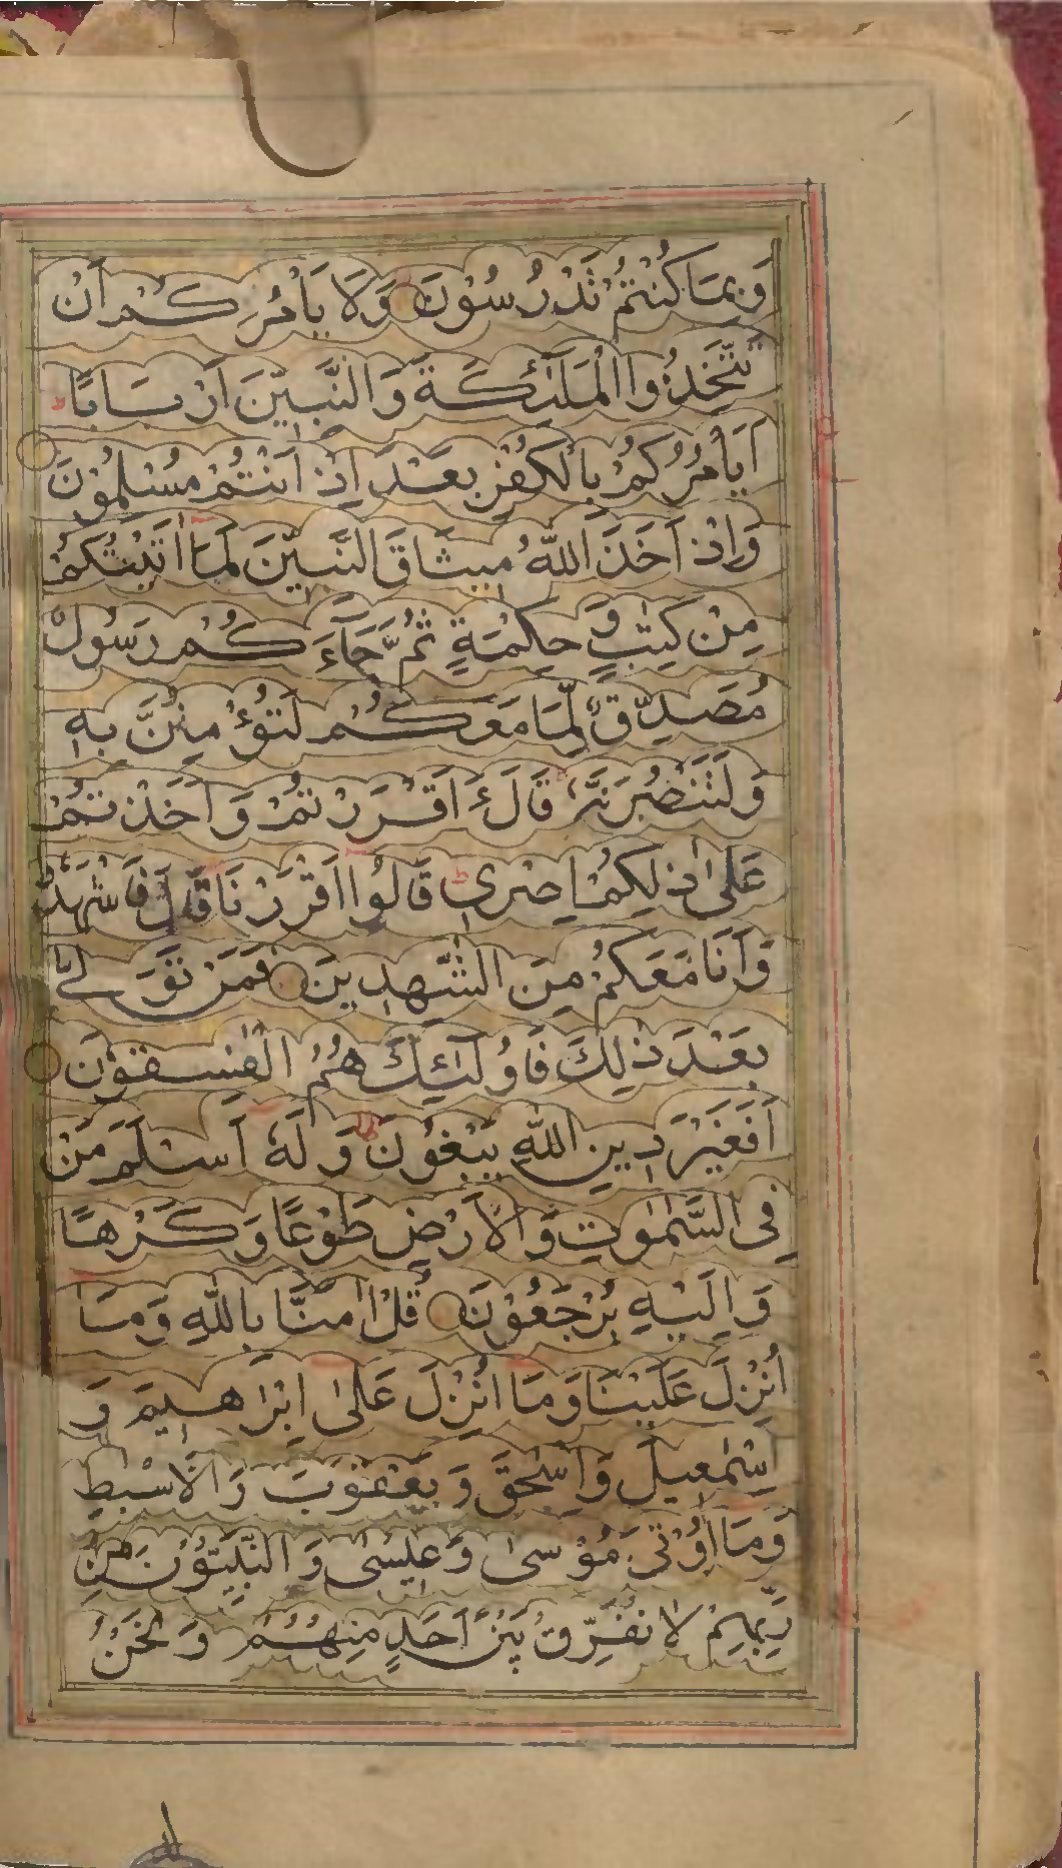 وَبِمَا كُنْتُمْ تَدْرُسُوْنَ وَلَا يَاْمُرَكُمْ اَنْ
تَتَّخِذُوا الْمَلٰٓئِكَةَ وَالنَّبِيّٖنَ اَرْبَابًا ط
اَيَاْمُرُكُمْ بِالْكُفْرِ بَعْدَ اِذْ اَنْتُمْ مُسْلِمُوْنَ
وَاِذْ اَخَذَ اللّٰهُ مِيْثَاقَ النَّبِيّٖنَ لَمَا اٰتَيْتُكُمْ
مِنْ كِتٰبٍ وَّ حِكْمَةٍ ثُمَّ جَآءَكُمْ رَسُوْلٌ
مُصَدِّقٌ لِّمَا مَعَكُمْ لَتُؤْمِنُنَّ بِهٖ
وَلَتَنْصُرُنَّهٗ ط قَالَ ءَاَقْرَرْتُمْ وَاَخَذْتُمْ
عَلٰى ذٰلِكُمْ اِصْرِيْ ط قَالُوْا اَقْرَرْنَا قَالَ فَاشْهَدُوْا
وَاَنَا مَعَكُمْ مِنَ الشّٰهِدِيْنَ فَمَنْ تَوَلّٰى
بَعْدَ ذٰلِكَ فَاُولٰٓئِكَ هُمُ الْفٰسِقُوْنَ
اَفَغَيْرَ دِيْنِ اللّٰهِ يَبْغُوْنَ وَلَهٗ اَسْلَمَ مَنْ
فِى السَّمٰوٰتِ وَالْاَرْضِ طَوْعًا وَكَرْهًا
وَاِلَيْهِ يُرْجَعُوْنَ قُلْ اٰمَنَّا بِاللّٰهِ وَمَا
اُنْزِلَ عَلَيْنَا وَمَا اُنْزِلَ عَلٰى اِبْرٰهِيْمَ وَ
اِسْمٰعِيْلَ وَاِسْحٰقَ وَيَعْقُوْبَ وَالْاَسْبَاطِ
وَمَا اُوْتِيَ مُوْسٰى وَعِيْسٰى وَالنَّبِيُّوْنَ مِنْ
رَبِّهِمْ لَا نُفَرِّقُ بَيْنَ اَحَدٍ مِنْهُمْ وَنَحْنُ